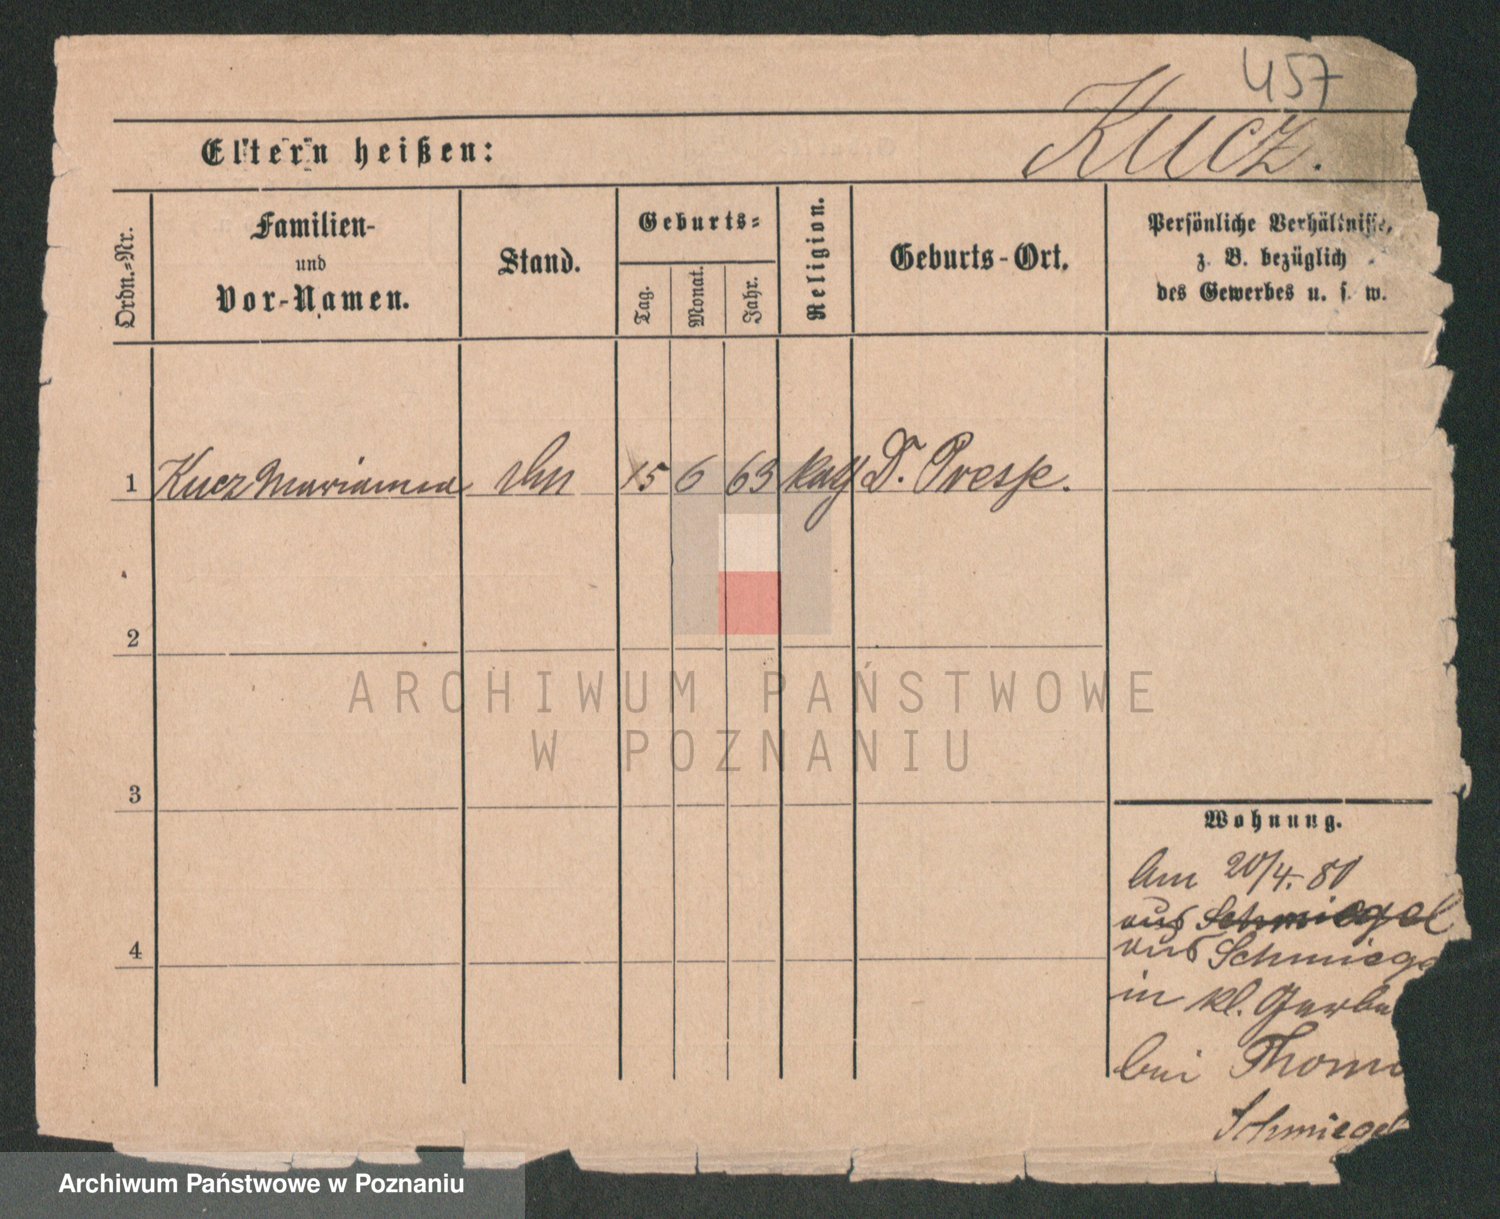 457
Kucz.
Eltern heißen:
Ordn.-Nr.
Familien-
und
Vor-Namen.
Stand.
Geburts-
Tag.
Monat.
Jahr.
Religion.
Geburts-Ort.
Persönliche Verhältnisse,
z. B. bezüglich
des Gewerbes u. s. w.
1 Kucz Marianna 15 6 63 kath D. Presse.
2
ARCHIWUM PAŃSTWOWE
W POZNANIU
3
Wohnung.
Am 20/4. 80
aus Schmiegel
4
aus Schmiege
in kl. Gerbe
bei Thom
Schmiegel
Archiwum Państwowe w Poznaniu